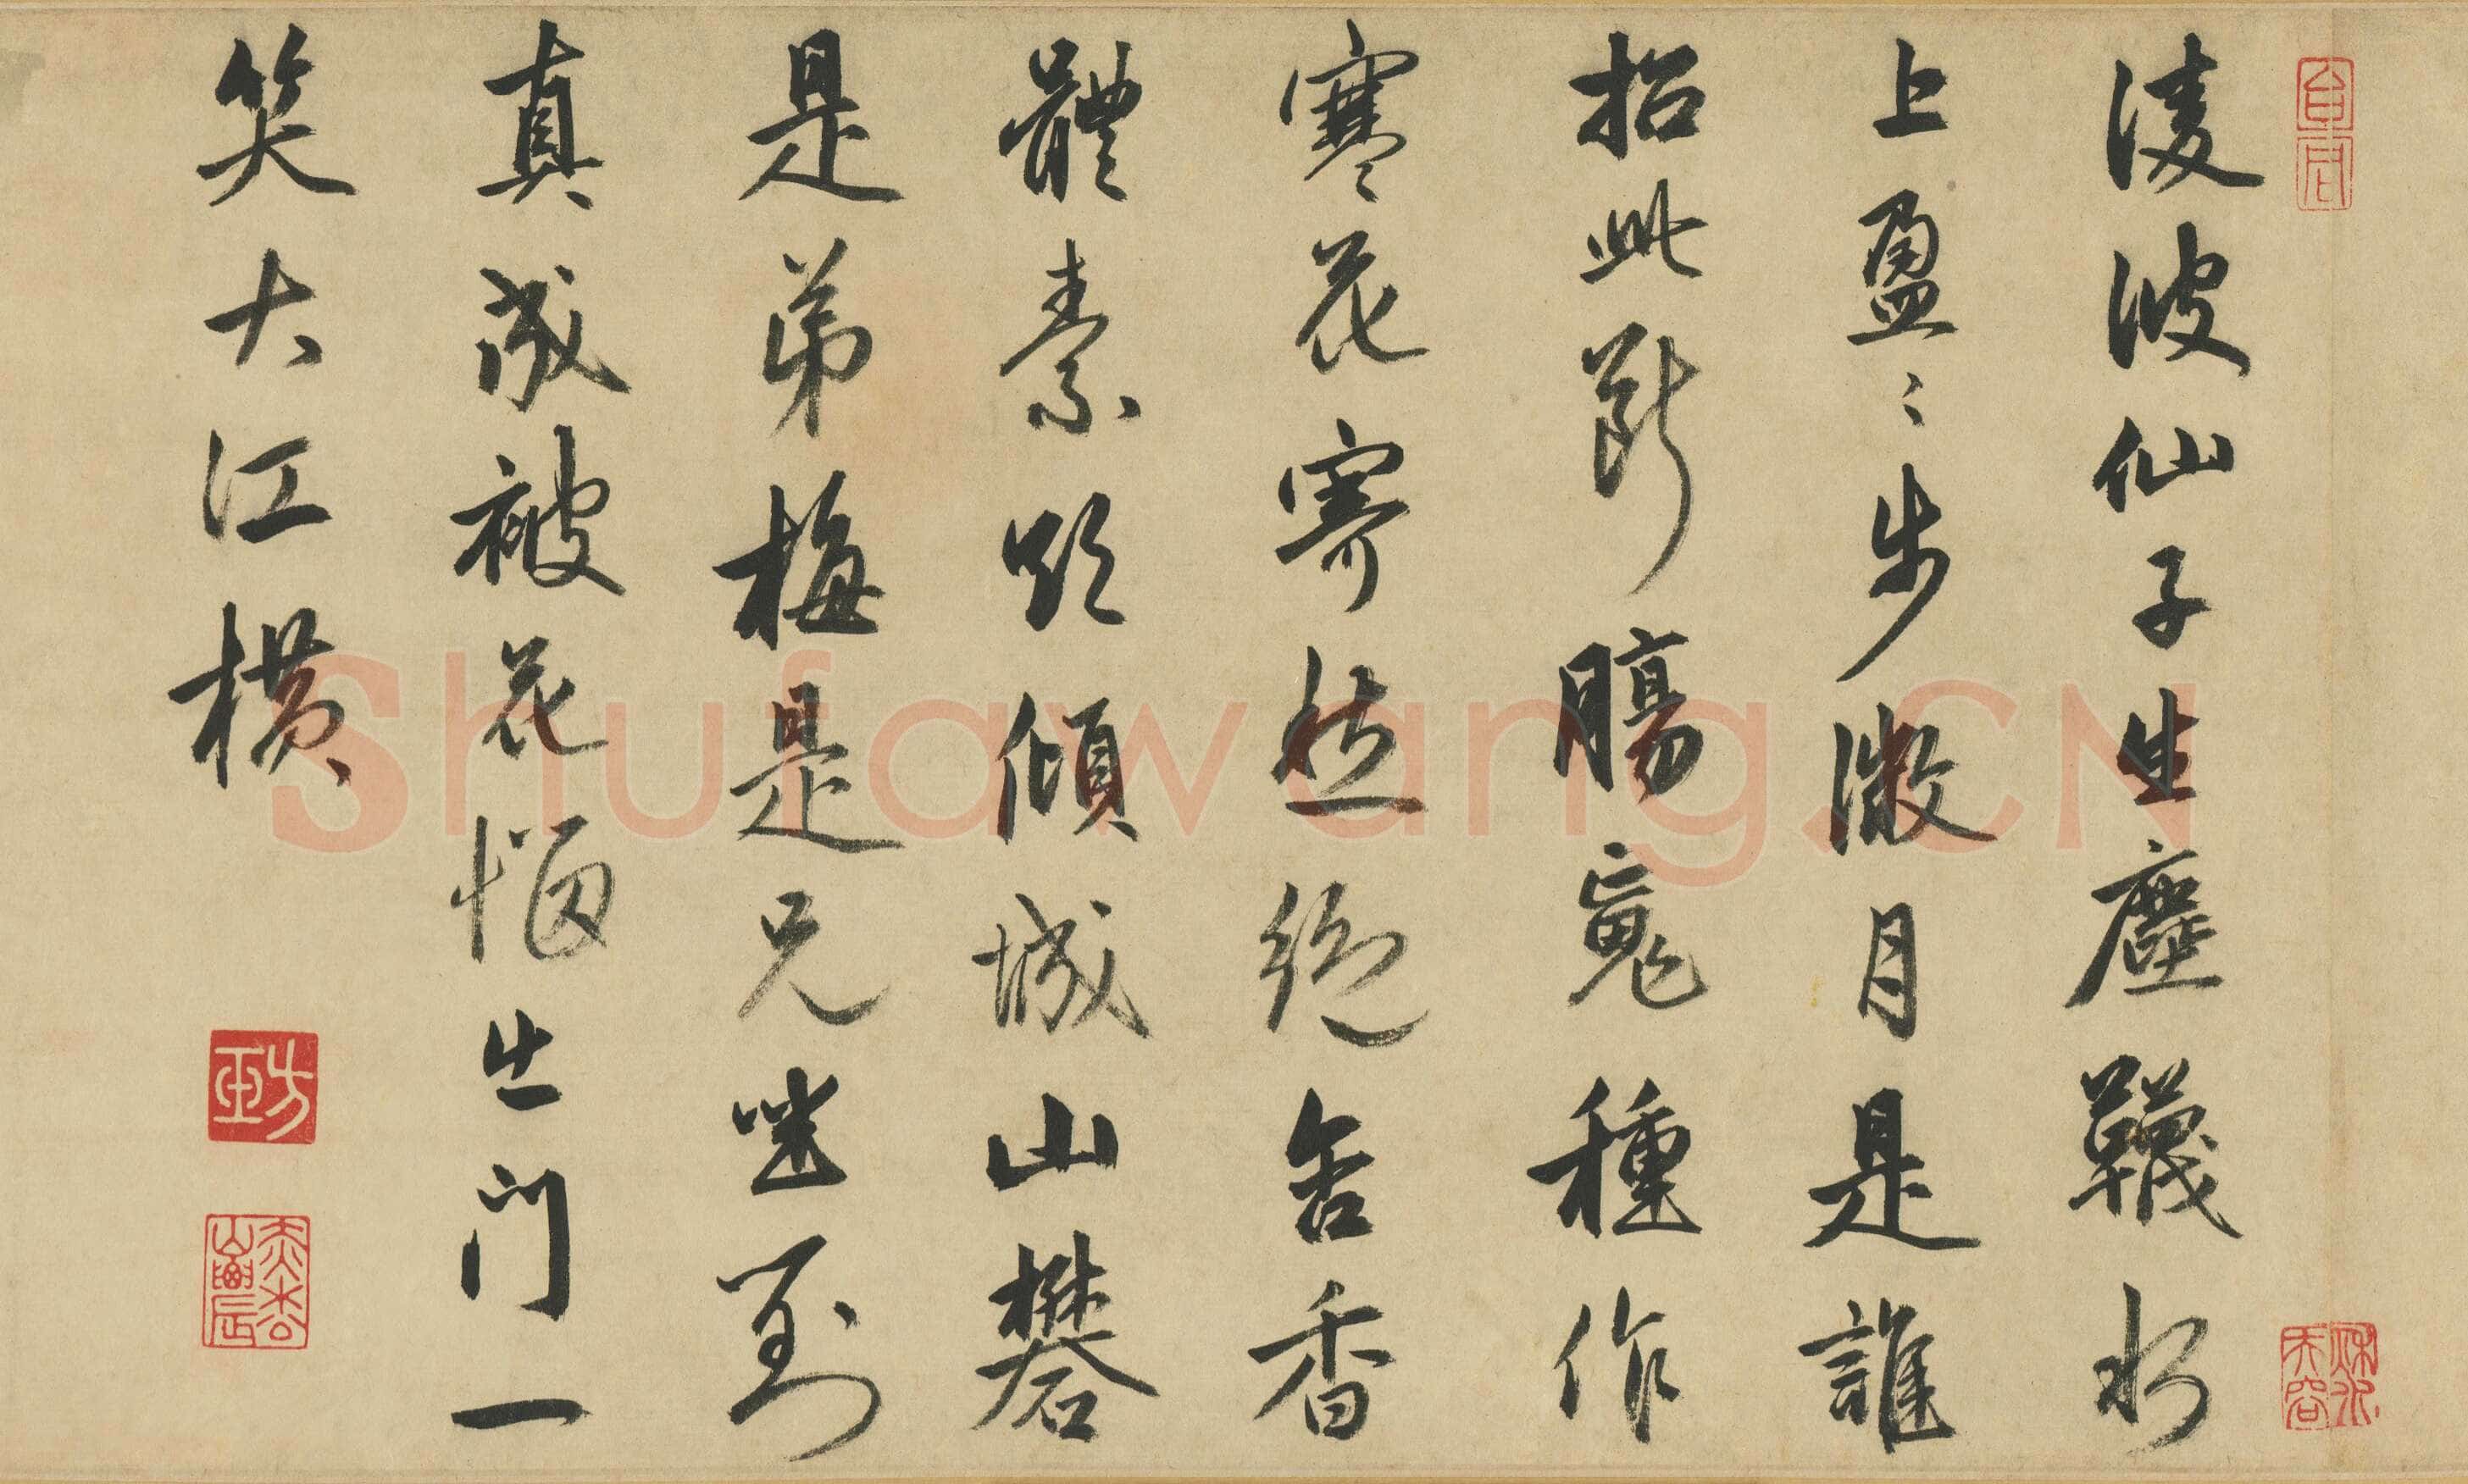 淩波仙子生塵韈水
上盈〻步微月是誰
招此斷腸䰟種作
寒花寄愁絕含香
體素欲傾城山礬
是弟梅是兄坐對
真成被花惱出門一
笑大江橫
Shufawang.CN